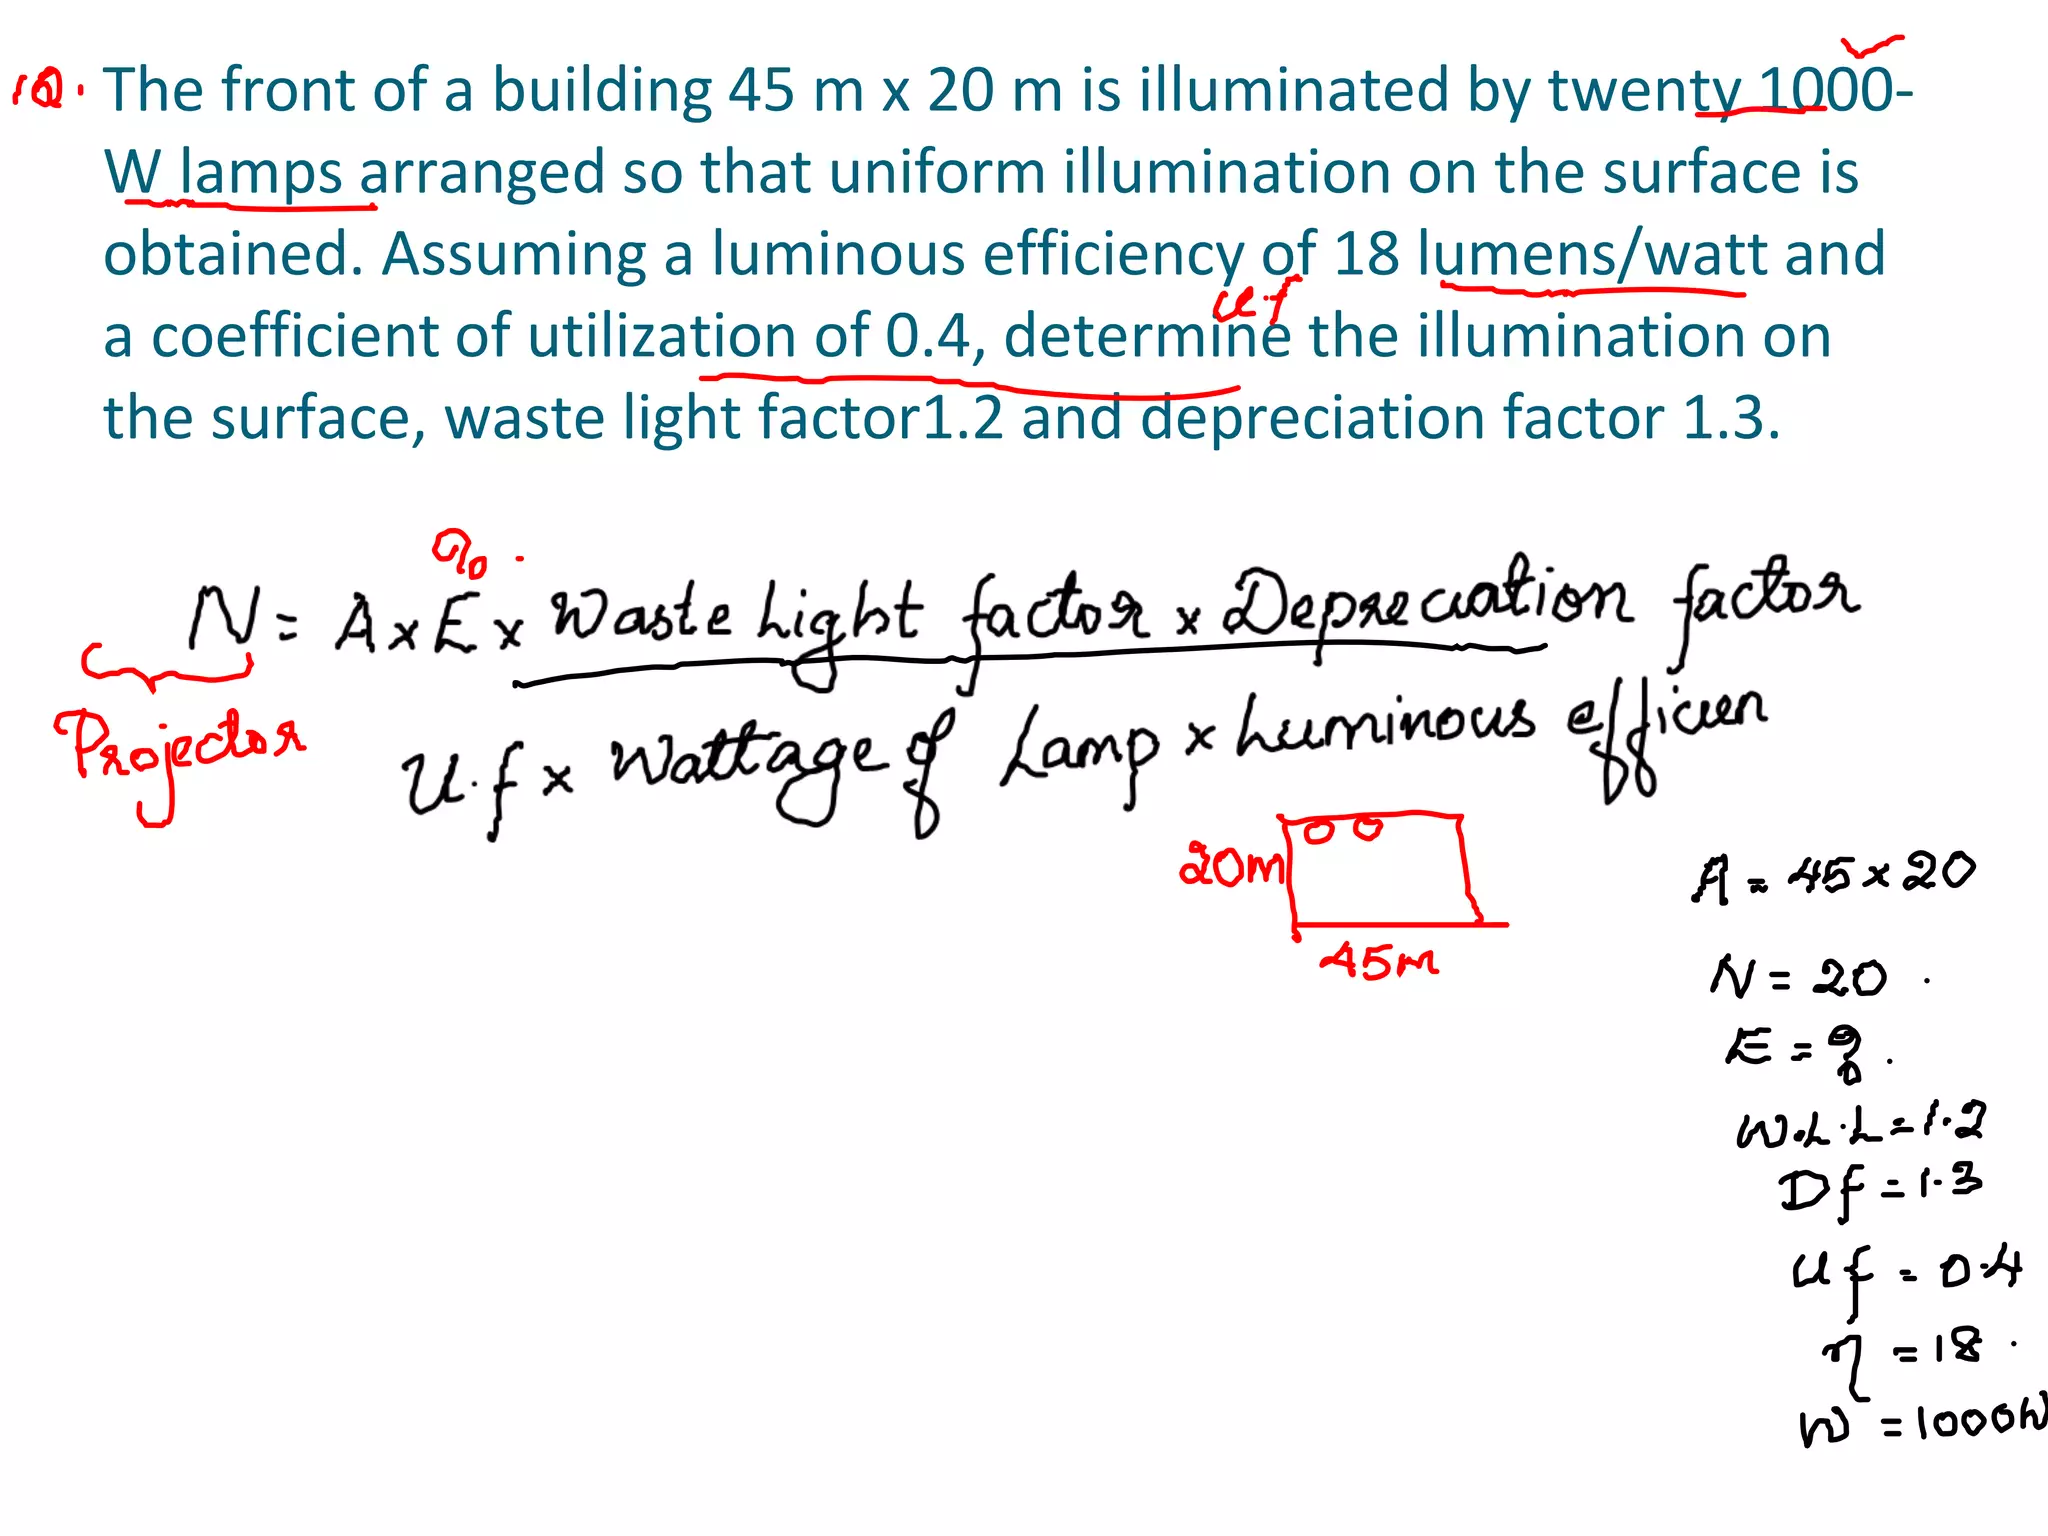 10. The front of a building 45 m x 20 m is illuminated by twenty 1000-
W lamps arranged so that uniform illumination on the surface is
obtained. Assuming a luminous efficiency of 18 lumens/watt and
u.f
a coefficient of utilization of 0.4, determine the illumination on
the surface, waste light factor1.2 and depreciation factor 1.3.
N = A x E x Waste Light factor x Depreciation factor
U.f x Wattage of Lamp x Luminous efficien
Projector
20m
45m
A = 45 x 20
N = 20 .
E = ? .
W.L.L = 1.2
Df = 1.3
Uf = 0.4
η = 18 .
W = 1000W